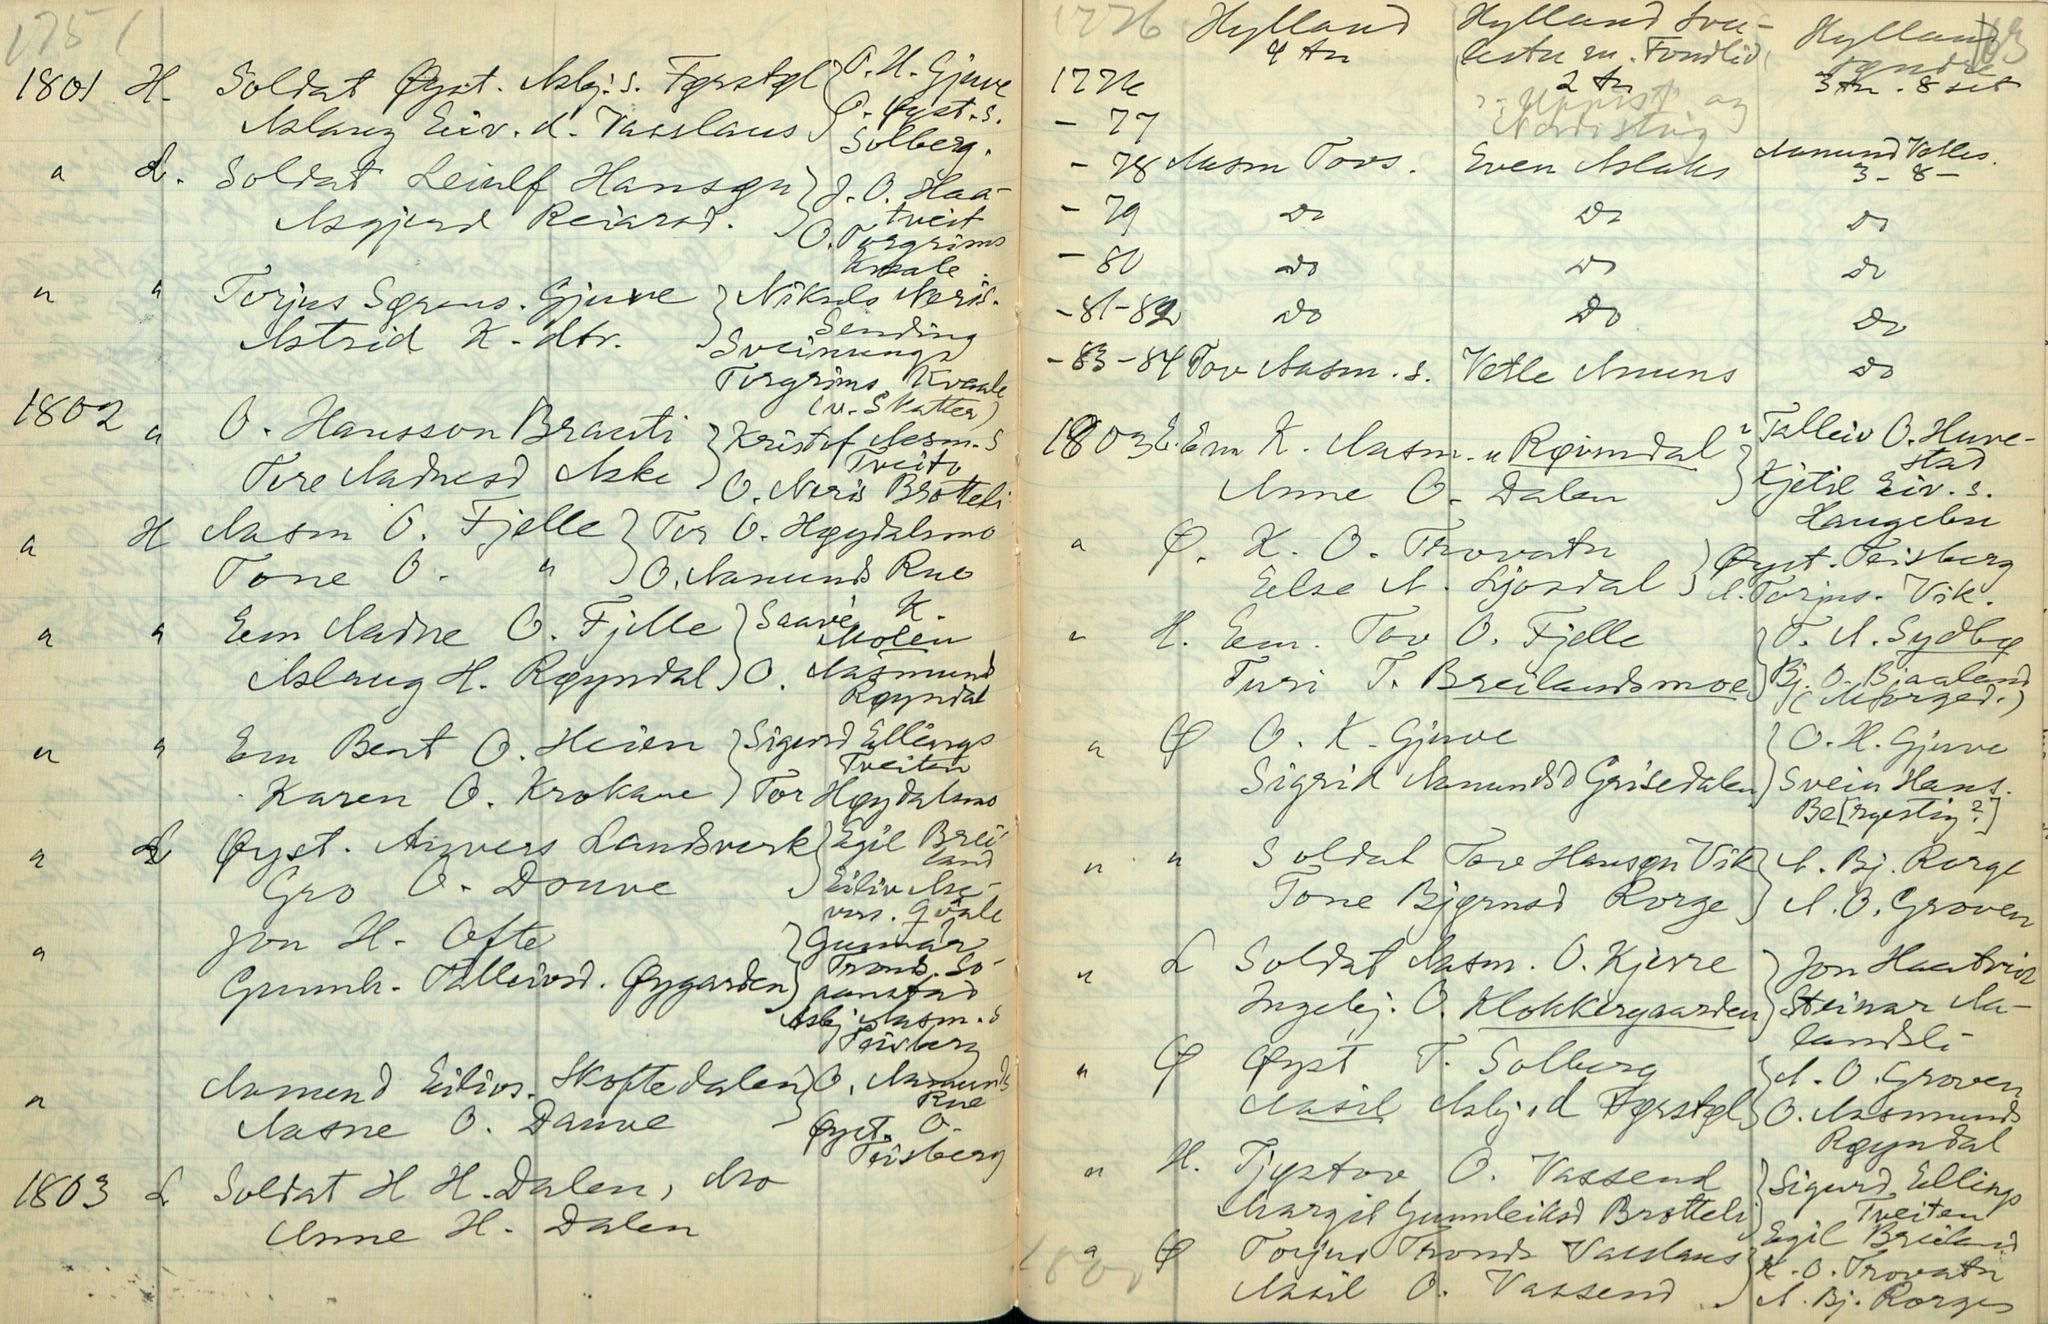 1751
1801 H. Soldat Øyst. Asbj. s. Førstøl } O. H. Gjuve
Aslaug Eiv. d. Vasslaus } O. Øyst. s.
Solberg.
" L. Soldat Leiulf Hansøn } J. O. Haa-
tveit
Asgjerd Reiarsd. } O. Torgrims
Kvale
" " Torjus Sørens. Gjuve } Nikuls Neris.
Sending
Astrid K. dtr. } Sveinungs
Torgrims Kvaale
(v. Skatter)
1802 " O. Hansson Brauti } Kristof Aasm. s
Tveito
Tore Aadnesd Aske } O. Neris Brotteli
" H Aasm O. Fjelle } Tor O. Høydalsmo
Tone O. " } O. Aamunds Rue
" " Em Aadne O. Fjelle } Saave K.
Molen
Aslaug H. Røyndal } O. Aasmunds
Røyndal
" " Em Bent O. Heien } Sigurd Ellings
Tveiten
Karen O. Krokane } Tor Høydalsmo
" L Øyst. Anvers Landsverk } Egil Brei-
land
Gro O. Douve } Eiliv
Qvale
" Jon H. Ofte } Gunnar
Tronds.
Gunnh. Talleivsd. Øygarden }
Asbj. Aasm. s
Teisberg
" Aamund Eilivs. Skoftedalen } O. Aamunds
Rue
Aasne O. Dauve } Øyst. O.
Teisberg
1803 L Soldat H H. Dalen,
Anne H. Dalen
1776 Hylland Hylland Hylland 63
4 tn m. Fondlid
1776 2 tn 3 tn. 8 set
- 77 Uppistog og
Nordistog
- 78 Aasm Tovs. Even Aslaks Aamund Vetles.
3 - 8 -
- 79 Do Do Do
- 80 Do Do Do
- 81-82 Do Do Do
- 83-84 Tov Aasm. s. Vetle Amuns Do
1803 E. Em K. Aasm. Røimdal } Talleiv O. Huve-
stad
Anne O. Dalen } Kjetil Eiv. s.
Haugeln
" Ø. K. O. Trovatn } Øyst. Teisberg
Else A. Ljosdal } A. Torjus. Vik.
" H. Em. Tov O. Fjelle } T. A. Sydbø
Turi T. Breilandsmoe } Bj. O. Bjaaland
(Morged.)
" Ø O. K. Gjuve } O. H. Gjuve
Sigrid Aamundsd Grisedalen } Svein Hans.
Be[rgestig?]
" " Soldat Tov Hansøn Vik } A. Bj. Rorge
Tone Bjørnsd Rorge } A. O. Groven
" L Soldat Aasm. O. Kjerre } Jon Haatveit
Ingebj. O. Klokkergaarden } Steinar Aa-
landsli
" Ø Øyst T. Solberg } A. O. Groven
Aasil Asbj. d Førstøl } O. Aasmunds
Røyndal
" H. Tjøstov O. Vassend } Sigurd Ellings
Tveiten
Margit Gunnleiksd Brotteli } Egil Breiland
" Ø Torjus Tronds Vasslaus } K. O. Trovatn
Aasil O. Vassend } A. Bj. Rorge